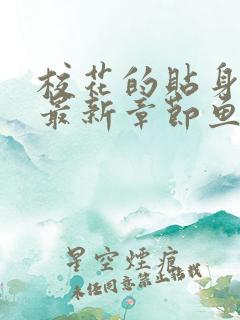 校花的貼身
最新章節魚
星空煙痕
未经同意禁止转载